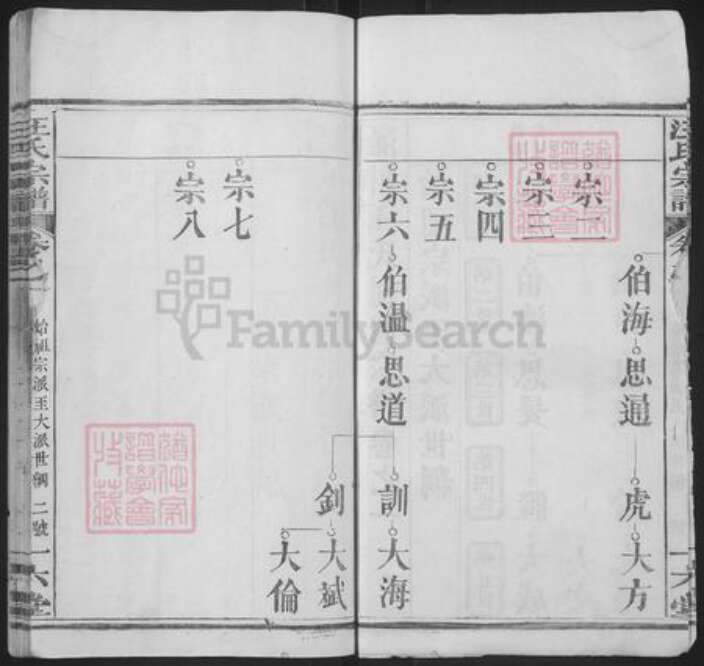 汪氏宗譜
伯海 思通 虎 大方
宗二
宗三
宗四
宗五
宗六 伯溫 思道 訓 大海
釗 大斌
大倫
宗七
宗八
汪氏宗譜 卷之一 始祖宗派至大派世綱 二號 一六堂
FamilySearch